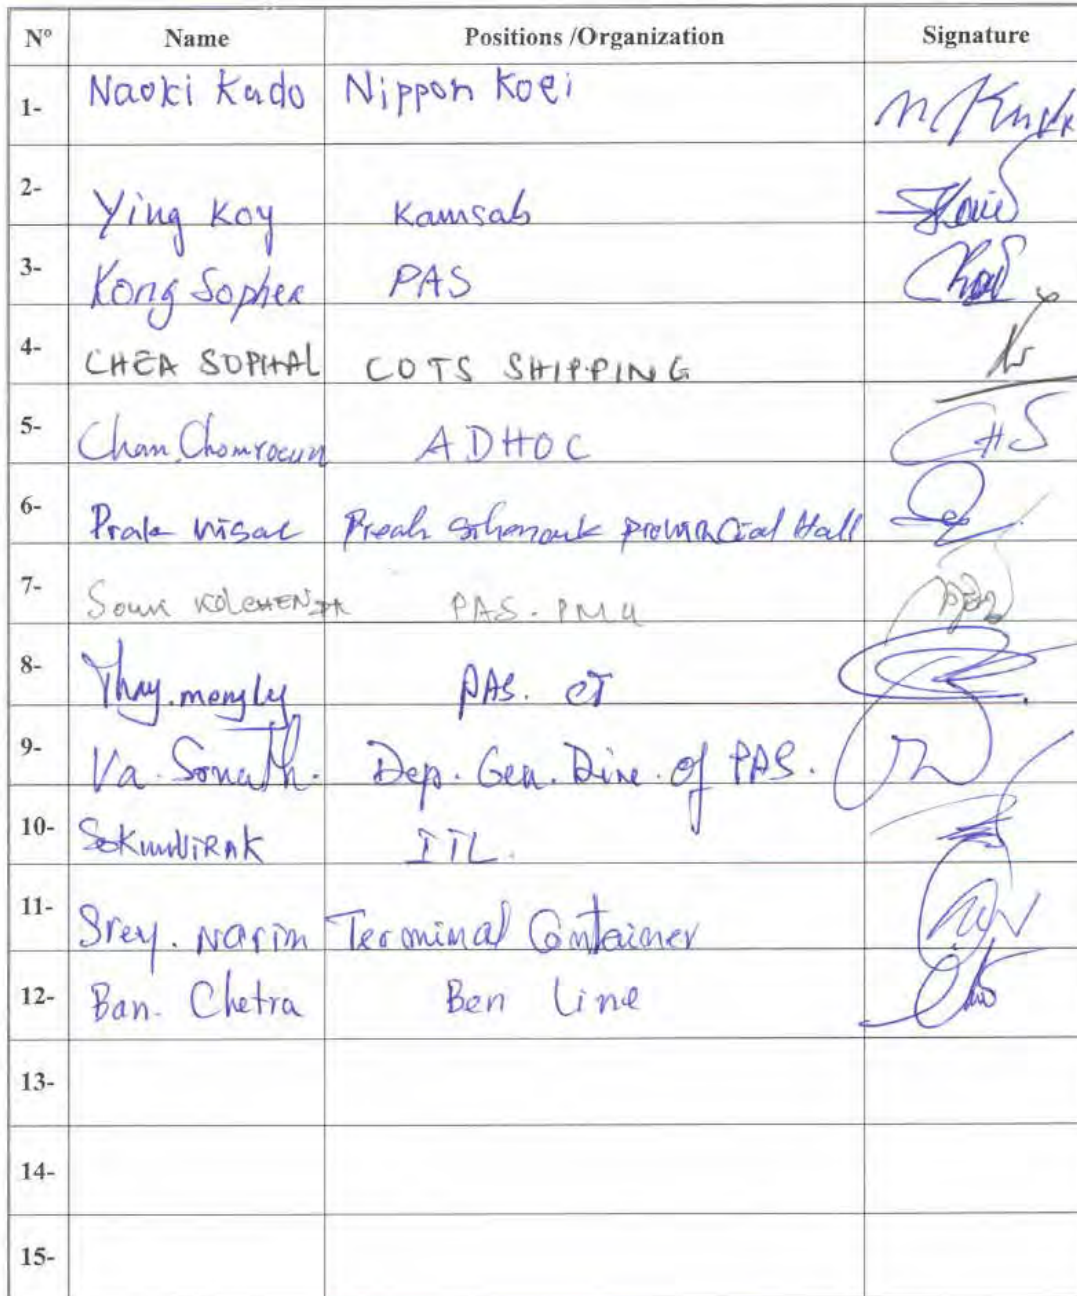 Nº Name Positions /Organization Signature
1- Naoki Kudo Nippon Koei
2- Ying Koy Kamsab
3- Kong Sophea PAS
4- CHEA SOPHAL COTS SHIPPING
5- Chan Chomroeun ADHOC
6- Prak Visal Preah sihanouk provincial Hall
7- Soun PAS. PMU
8- Thay. mengly PAS. CT
9- Va. Sonath. Dep. Gen. Dire. of PAS.
10- SOKUNVIRAK ITL.
11- Srey. Narin Terminal Container
12- Ban. Chetra Ben Line
13-
14-
15-